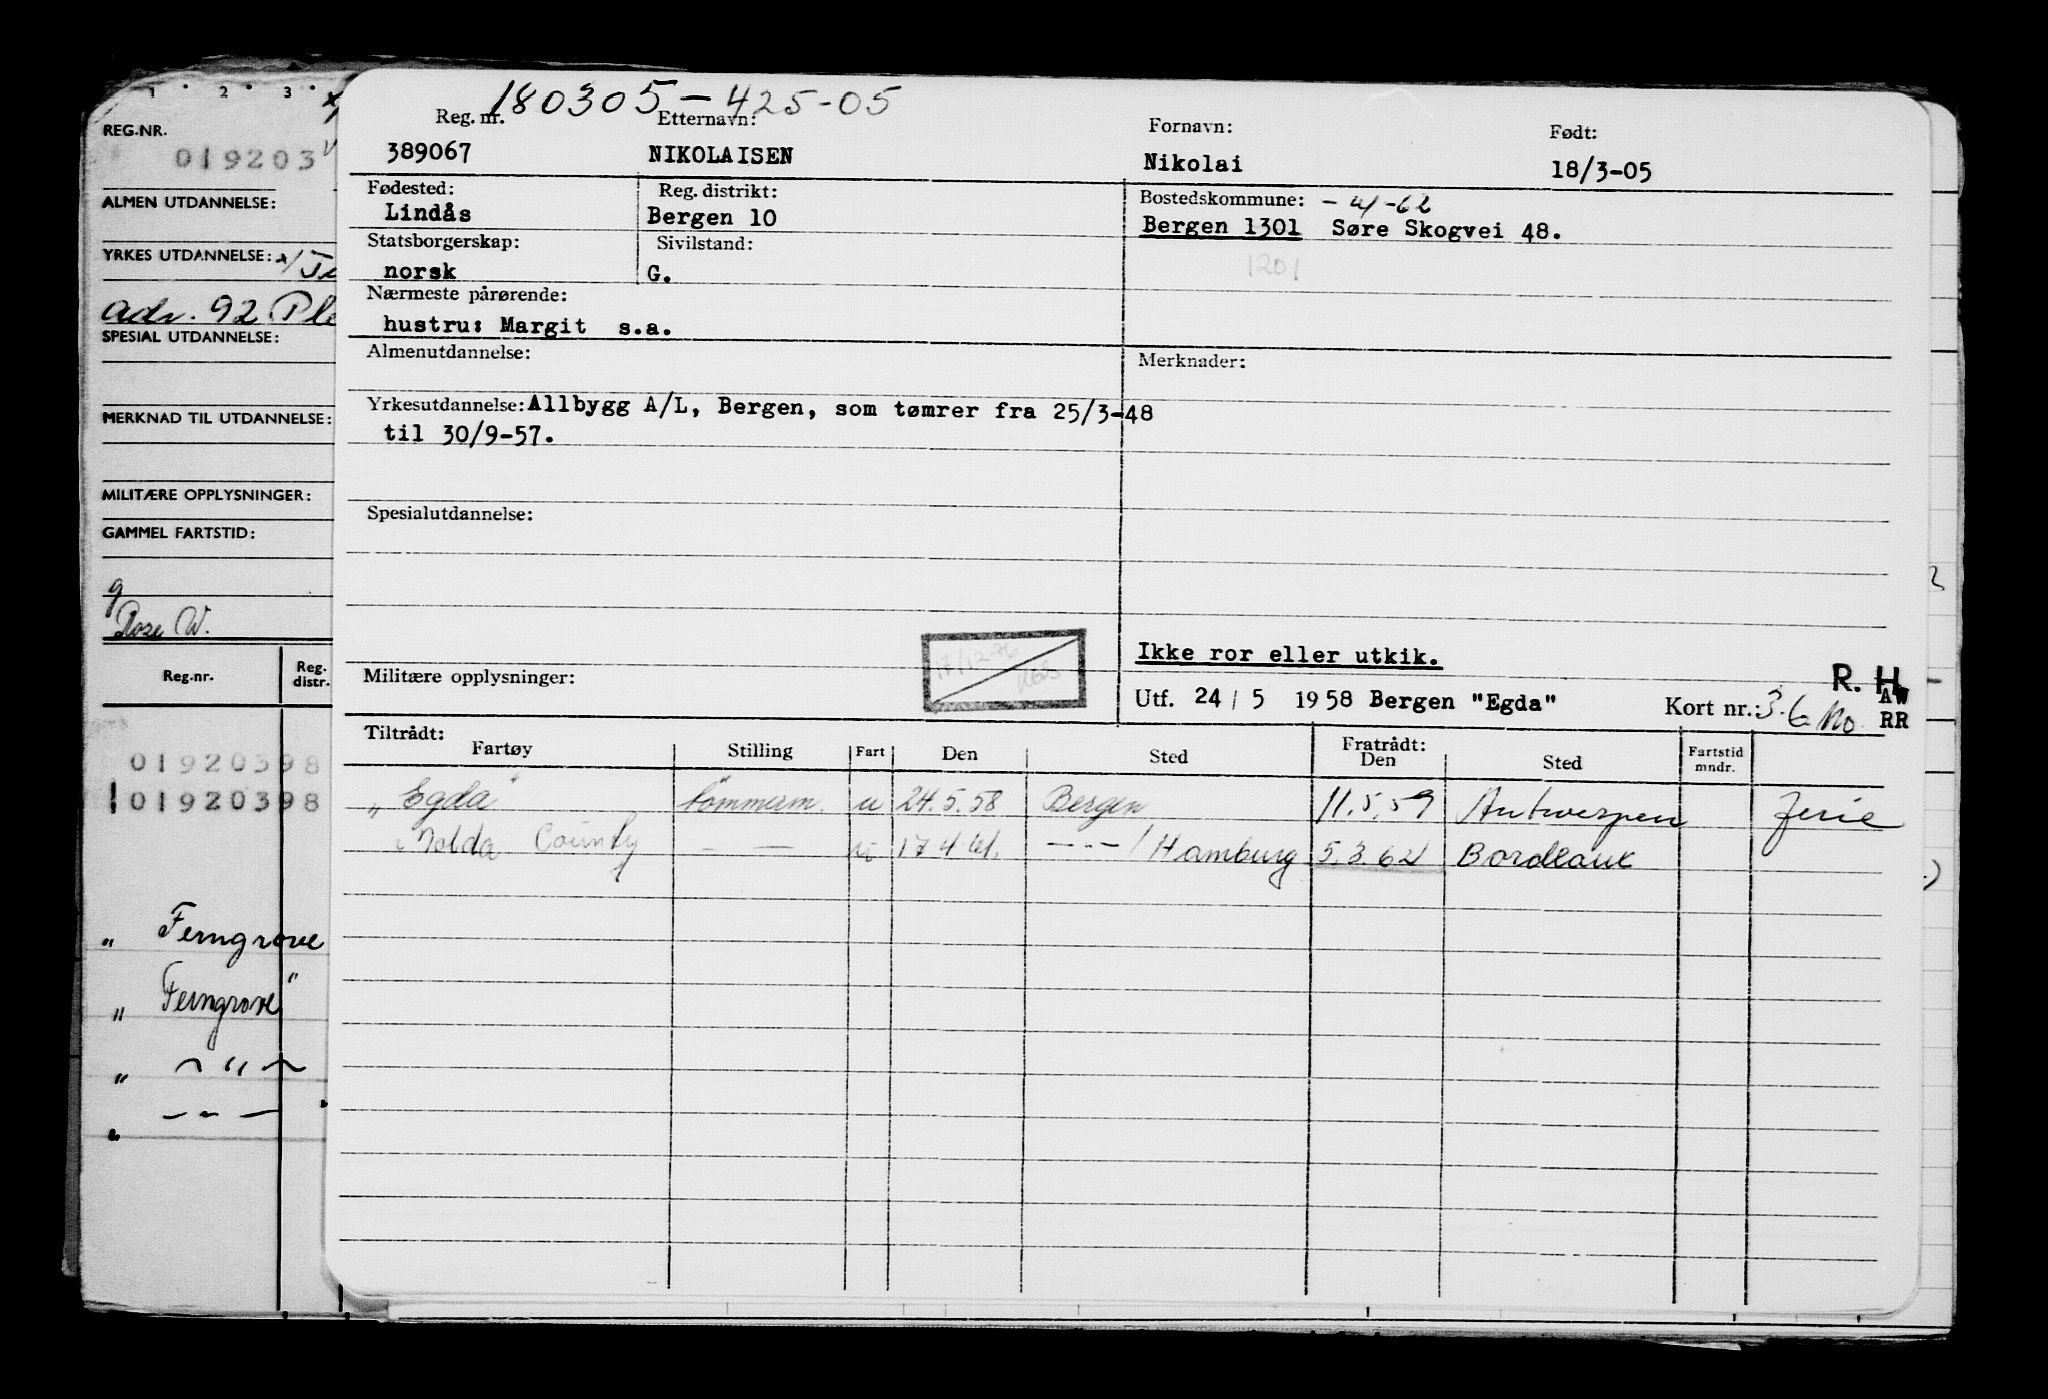 1 · 2 · 3 ·
REG.NR.
019203
ALMEN UTDANNELSE:
YRKES UTDANNELSE:
adr. 92
SPESIAL UTDANNELSE:
MERKNAD TIL UTDANNELSE:
MILITÆRE OPPLYSNINGER:
GAMMEL FARTSTID:
Rose W.
Reg.nr. Reg. distr.
01920398
01920398
„ Ferngrove
„ Ferngrove"
„ — " —
„ — - —
180305-425-05
Reg. nr. Etternavn: Fornavn: Født:
389067 NIKOLAISEN Nikolai 18/3-05
Fødested: Reg. distrikt: Bostedskommune: -4/-62
Lindås Bergen 10 Bergen 1301 Søre Skogvei 48.
Statsborgerskap: Sivilstand: 1201
norsk G.
Nærmeste pårørende:
hustru: Margit s.a.
Almenutdannelse: Merknader:
Yrkesutdannelse: Allbygg A/L, Bergen, som tømrer fra 25/3-48
til 30/9-57.
Spesialutdannelse:
Ikke ror eller utkik.
17/12-76
Militære opplysninger:
R. H
AW
Utf. 24 / 5 1958 Bergen "Egda" Kort nr.: 3. RR
Tiltrådt: Fratrådt:
Fartøy Stilling Fart Den Sted Den Sted Fartstid mndr.
„Egda" tömmerm. u 24.5.58 Bergen 11.5.59 Antwerpen ferie
Molda County — — u 17.4.61. —"—/Hamburg 5.3.62 Bordeaux